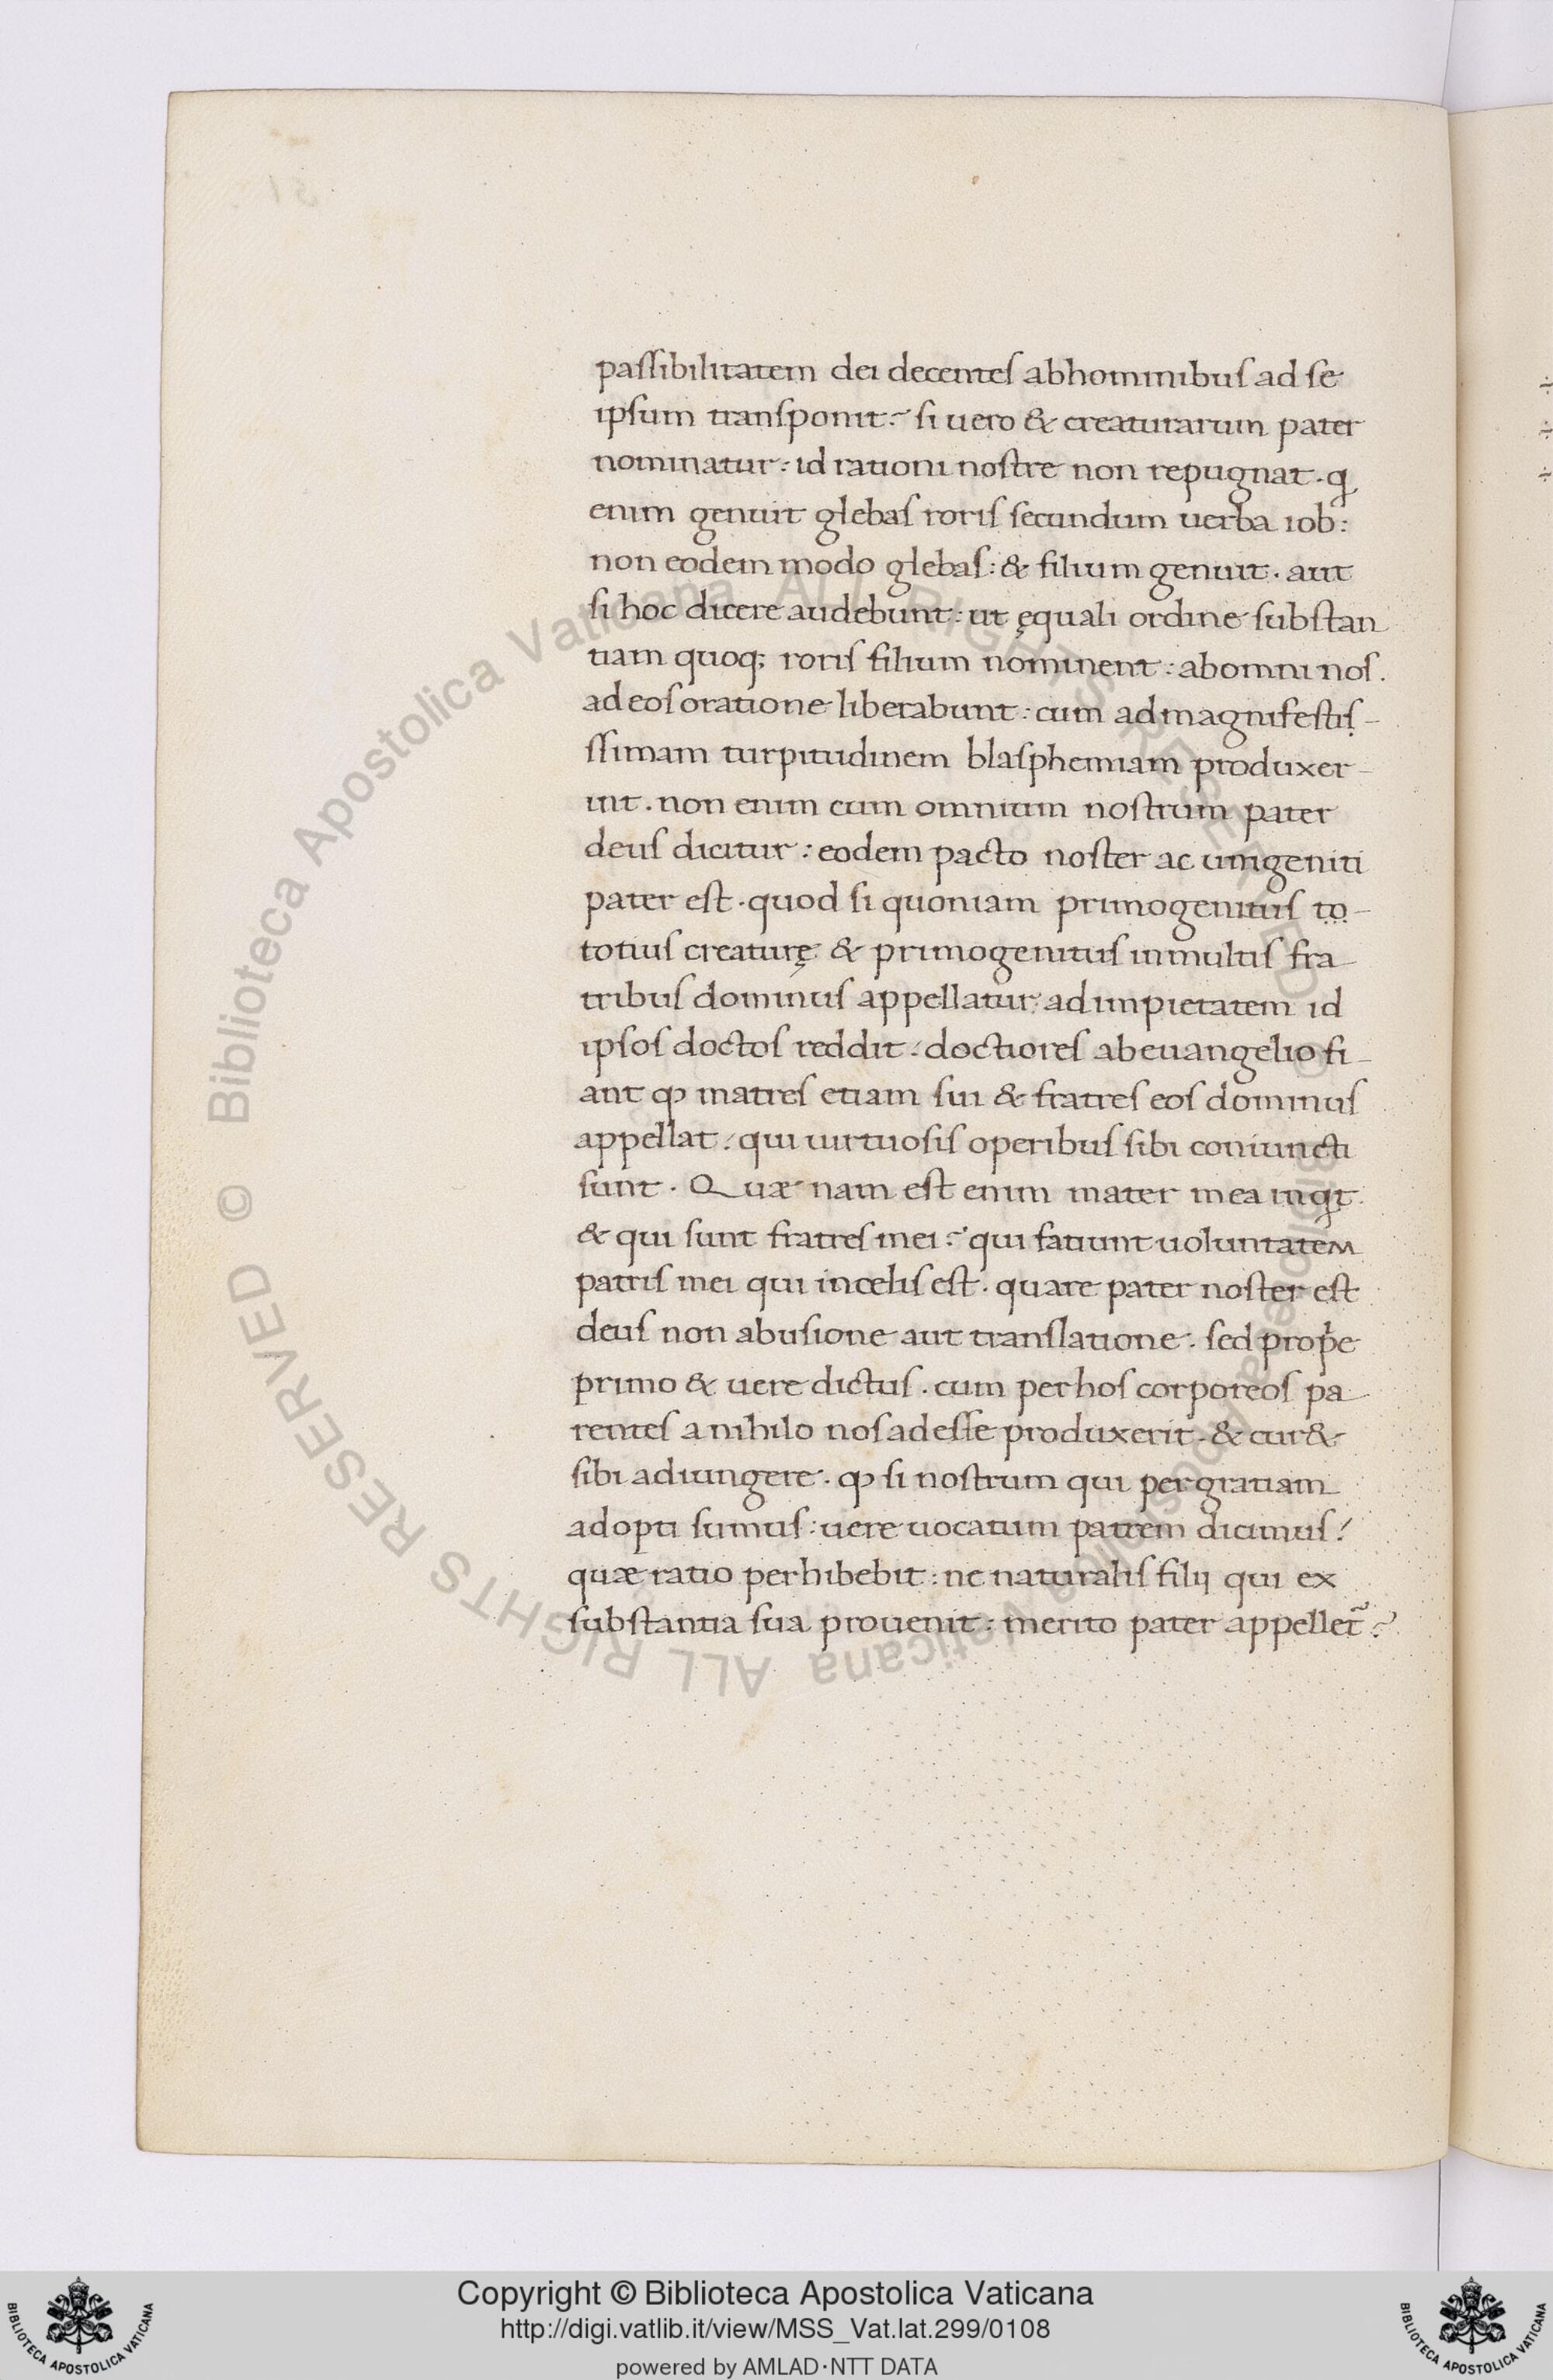 passibilitatem dei decentes ab hominibus ad se
ipsum transponit: si uero & creaturarum pater
nominatur: id rationi nostre non repugnat. q
enim genuit glebas roris secundum uerba iob:
non eodem modo glebas: & filium genuit. aut
si hoc dicere audebunt: ut ęquali ordine substan
tiam quoq; roris filium nominent: ab omni nos.
ad eos oratione liberabunt: cum ad magnifestis-
ssimam turpitudinem blasphemiam produxer-
int. non enim cum omnium nostrum pater
deus dicitur: eodem pacto noster ac unigeniti
pater est. quod si quoniam primogenitus to-
totius creaturę & primogenitus in multis fra
tribus dominus appellatur: ad impietatem id
ipsos doctos reddit: doctiores ab euangelio fi-
ant qp matres etiam sui & fratres eos dominus
appellat: qui uirtuosis operibus sibi coniuncti
sunt. Quæ nam est enim mater mea inqt
& qui sunt fratres mei: qui fatiunt uoluntatem
patris mei qui in celis est. quare pater noster est
deus non abusione aut translatione. sed prop̄e
primo & uere dictus. cum per hos corporeos pa
rentes a nihilo nos ad esse produxerit. & cur&
sibi adiungere. qp si nostrum qui per gratiam
adopti sumus: uere uocatum patrem dicimus!
quæ ratio perhibebit: ne naturalis filij qui ex
substantia sua prouenit: merito pater appellet̃?
Biblioteca Apostolica Vaticana ALL RIGHTS RESERVED ©
Biblioteca Apostolica Vaticana ALL RIGHTS RESERVED ©
Copyright © Biblioteca Apostolica Vaticana
http://digi.vatlib.it/view/MSS_Vat.lat.299/0108
powered by AMLAD·NTT DATA
BIBLIOTECA APOSTOLICA VATICANA
BIBLIOTECA APOSTOLICA VATICANA